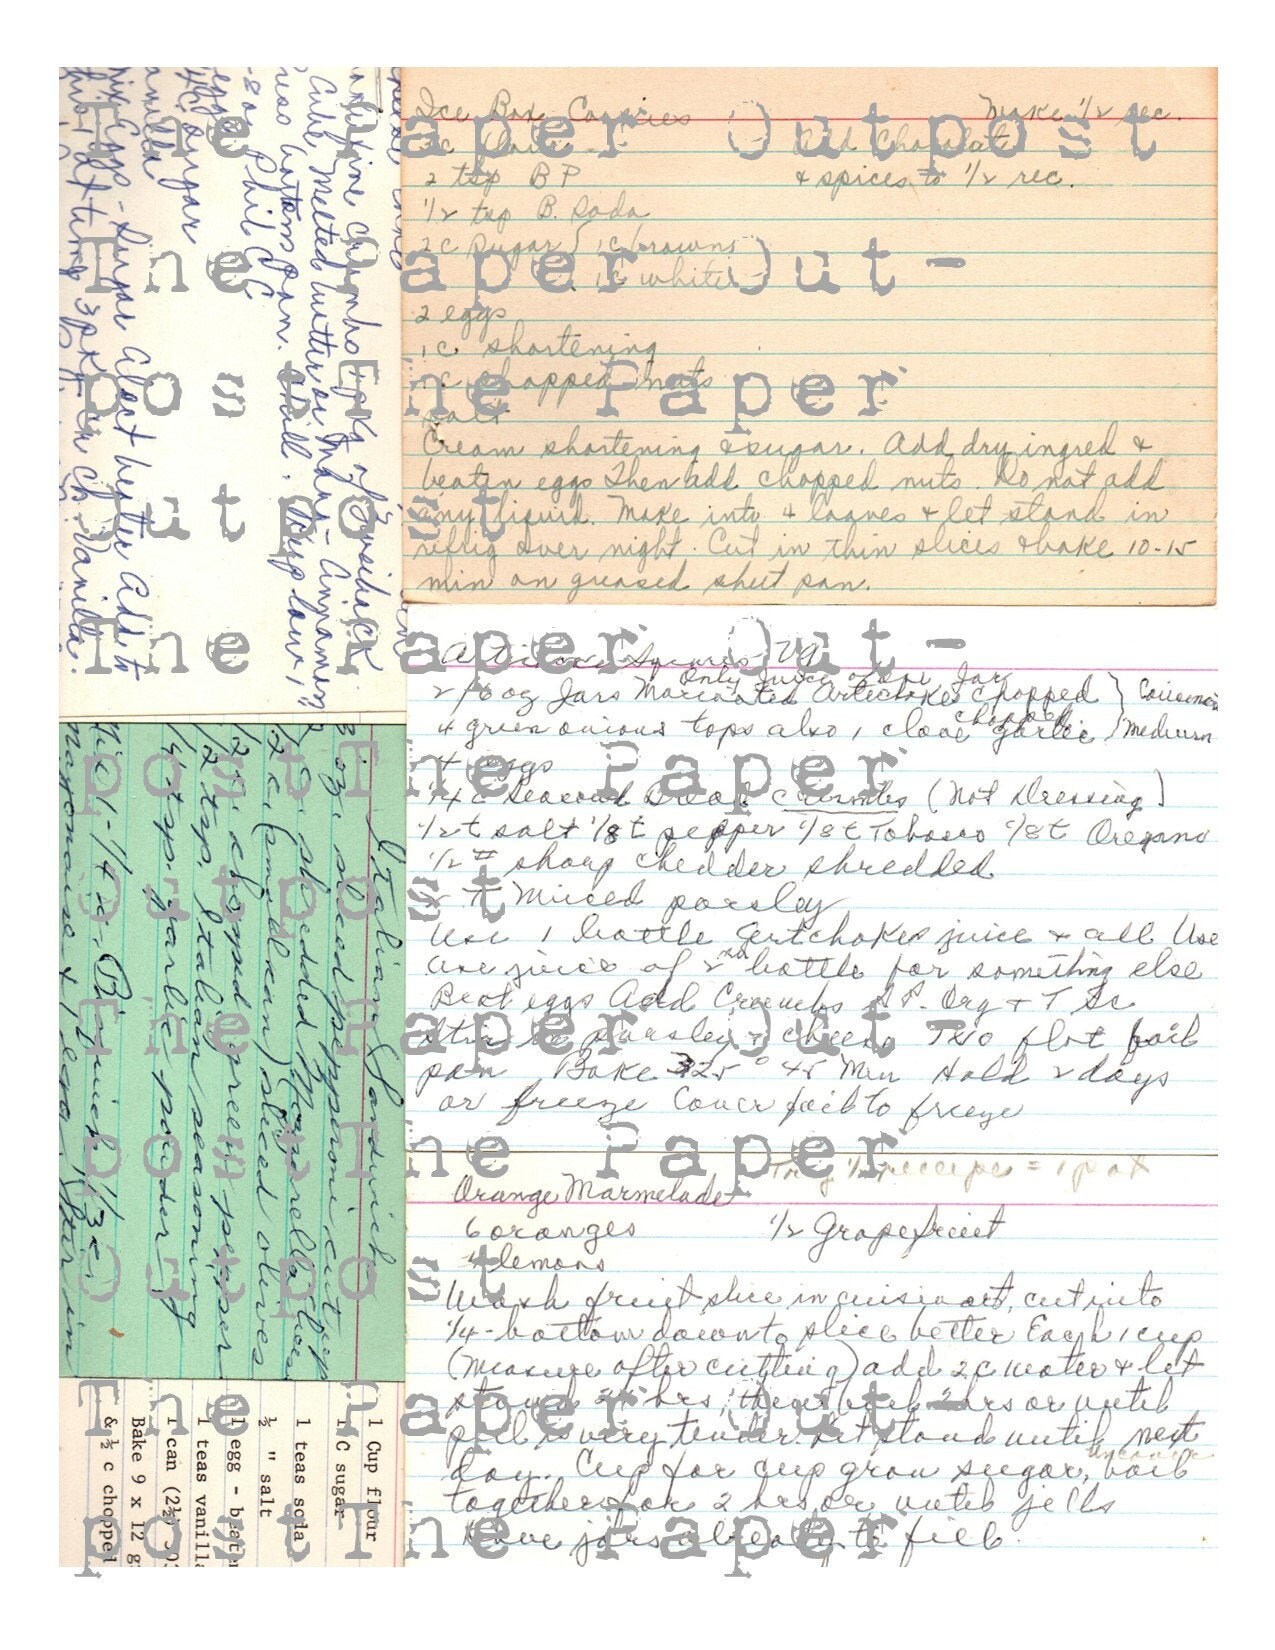 Ice Box Cookies Make 1/2 rec.
Add Chocolate
2 tsp B P & spices to 1/2 rec.
1/2 tsp B. Soda
2 c Sugar } 1 c brown
1 c white
2 eggs
1 c. shortening
1 c chopped nuts
salt
Cream shortening & sugar. Add dry ingred &
beaten eggs Then add chopped nuts. Do not add
any liquid. Make into 4 loaves & let stand in
refrig over night. Cut in thin slices & bake 10-15
min on greased sheet pan.
Squares VG
Only Juice of one Jar
2 / 6 oz Jars Marinated Artichokes chopped
4 green onions tops also 1 clove garlic } Medium
chopped
4 eggs
1/4 c Seasoned Bread Crumbs (Not Dressing)
1/2 t salt 1/8 t pepper 1/8 t Tobasco 1/8 t Oregano
1/2 # sharp chedder shredded
2 T Minced parsley
Use 1 bottle Artchokes juice & all Use
use juice of 2nd bottle for something else
Beat eggs Add Crumbs S P. Org & T Sc
Stir in parsley & cheese 7x10 flat foil
pan Bake 325° 45 Min Hold 2 days
or freeze Cover foil to freeze
Try 1/2 receipe = 1 pot
Orange Marmelade
6 oranges 1/2 Grapefruit
4 lemons
Wash fruit slice in cuisinart, cut into
1/4 - bottom down to slice better Each 1 cup
(measure after cutting) add 2 C water & let
stand 24 hrs, then boil 2 hrs or until
peel is very tender. Let stand until next
day. Cup for cup gran sugar, boil
uncover
together for 2 hrs or until jells
Have jars ready to fill.
1 pkg of Zwiebach
Cube Melted butter or Marg - Cinnamon
8 oz Phil CC
eggs
3/4 C sugar
vanilla
Mix Eggs - Sugar
Italian Sandwich
3 oz. sliced pepperoni cut up
1/2 c. shredded Mozzarella cheese
1/2 c. (small can) sliced olives
1/2 c. chopped green pepper
1/2 tsp. Italian seasoning
1/4 tsp. garlic powder
Mix 1-1/4 c. Bisquick, 1/3 c.
mayonaise & 1 egg. Stir in
1 Cup flour
1 C sugar
1 teas soda
½ " salt
1 egg - beaten
1 teas vanilla
1 can (2½)
Bake 9 x 12
& ½ c choppe
The Paper Outpost
The Paper Out-
post The Paper
Outpost
The Paper Out-
post The Paper
Outpost
The Paper Out-
post The Paper
Outpost
The Paper Out-
post The Paper